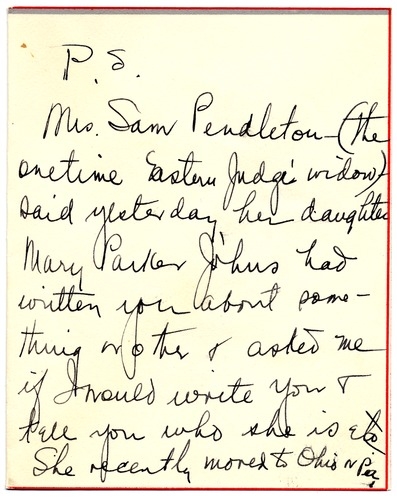 P.S.
Mrs. Sam Pendleton - (the
onetime Eastern Judge's widow)
said yesterday her daughter
Mary Parker Johns had
written you about some-
thing or other & asked me
if I would write you &
tell you who she is
She recently moved to Ohio